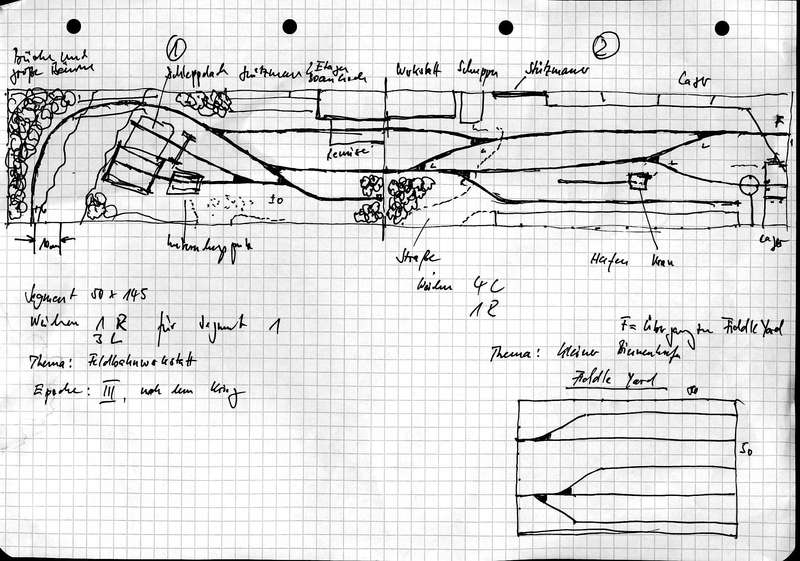 1
2
Brücke und
große Bäume
Schleppdach
Stützmauer
Etagen
Werkstatt
Schuppen
Stützmauer
Lager
Remise
F
L
L
L
L
10
10cm
Straße
Hafen
Kran
Lager
Weichen 4 L
1 R
Segment 50 x 145
Weichen 1 R für Segment 1
3 L
Thema: Feldbahnwerkstatt
Epoche: III, nach dem Krieg
F = Übergang zu Fiddle Yard
Thema: kleiner Binnenhafen
Fiddle Yard
50